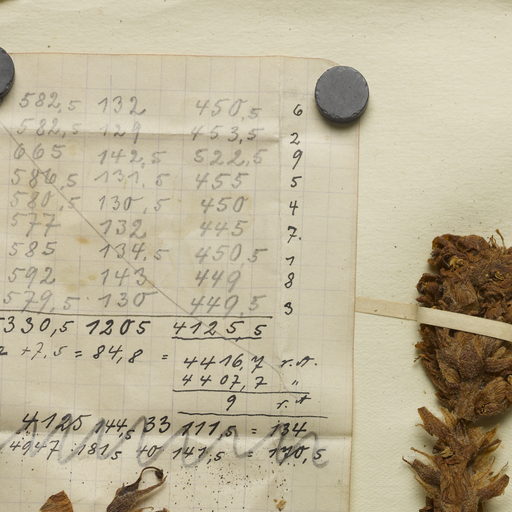 582,5 132 450,5 6
582,5 129 453,5 2
665 142,5 522,5 9
586,5 131,5 455 5
580,5 130,5 450 4
577 132 445 7.
585 134,5 450,5 1
592 143 449 8
579,5 130 449,5 3
5330,5 1205 4125,5
+7,5 = 84,8 = 4416,7 r.st.
4407,7 "
9 r.st
4125 144,5 33 111,5 = 134
4947 181,5 40 141,5 = 170,5